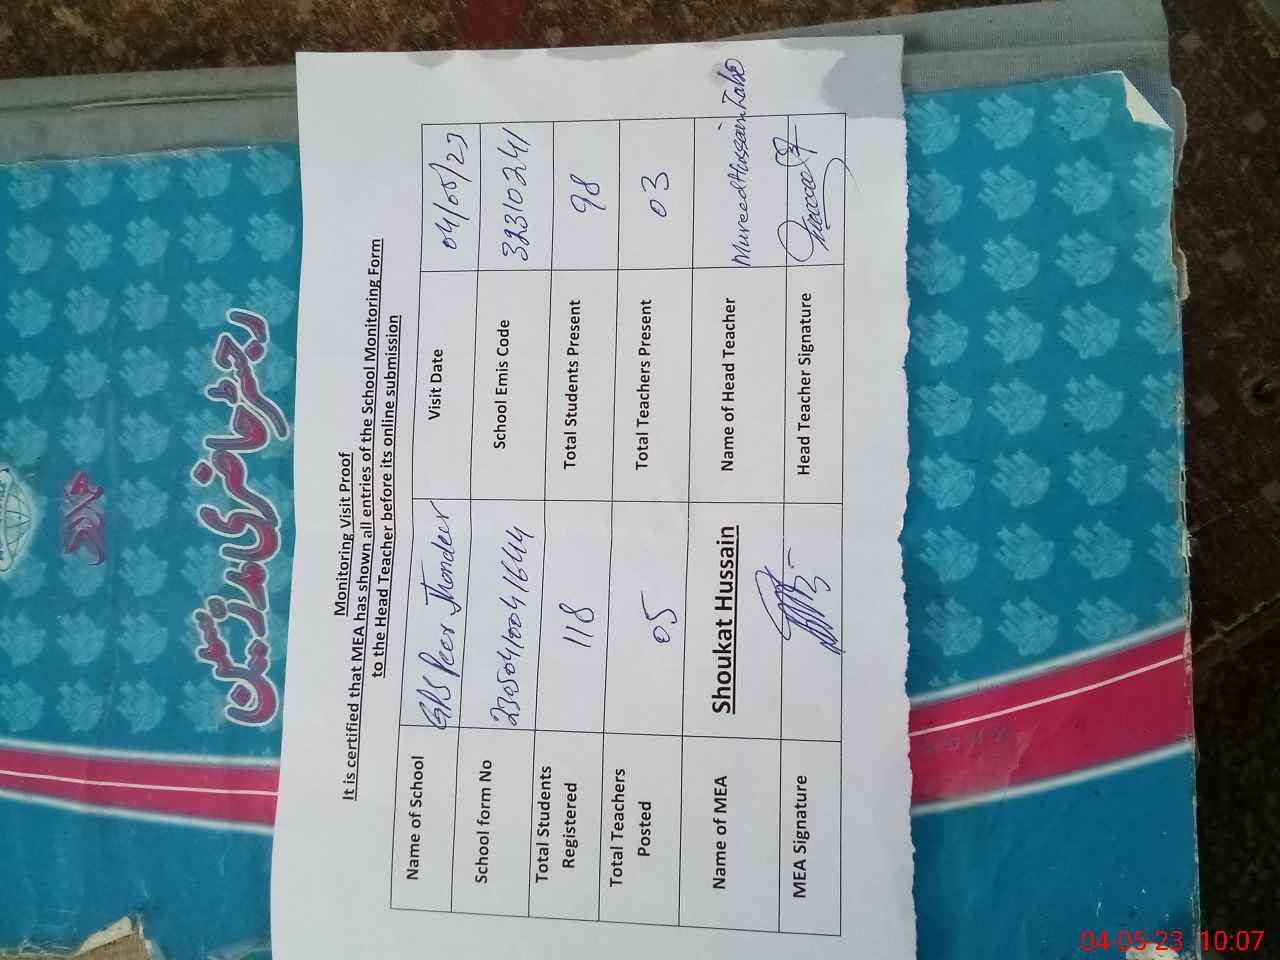 Monitoring Visit Proof
It is certified that MEA has shown all entries of the School Monitoring Form
to the Head Teacher before its online submission
Name of School GPS Peer Jhandeer Visit Date 04/05/23
School form No 23050410041644 School Emis Code 32310241
Total Students Registered 118 Total Students Present 98
Total Teachers Posted 05 Total Teachers Present 03
Name of MEA Shoukat Hussain Name of Head Teacher Mureed Hussain
MEA Signature Head Teacher Signature
رجسٹر حاضری مدرسین
04-05-23 10:07